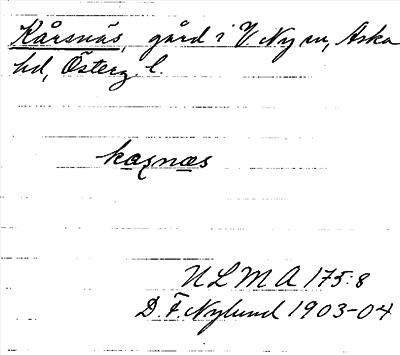 Kårsnäs, gård i V. Ny sn, Aska
hd, Österg. l.
kaʂnæs
ULMA 175:8
D. F. Nylund 1903-04